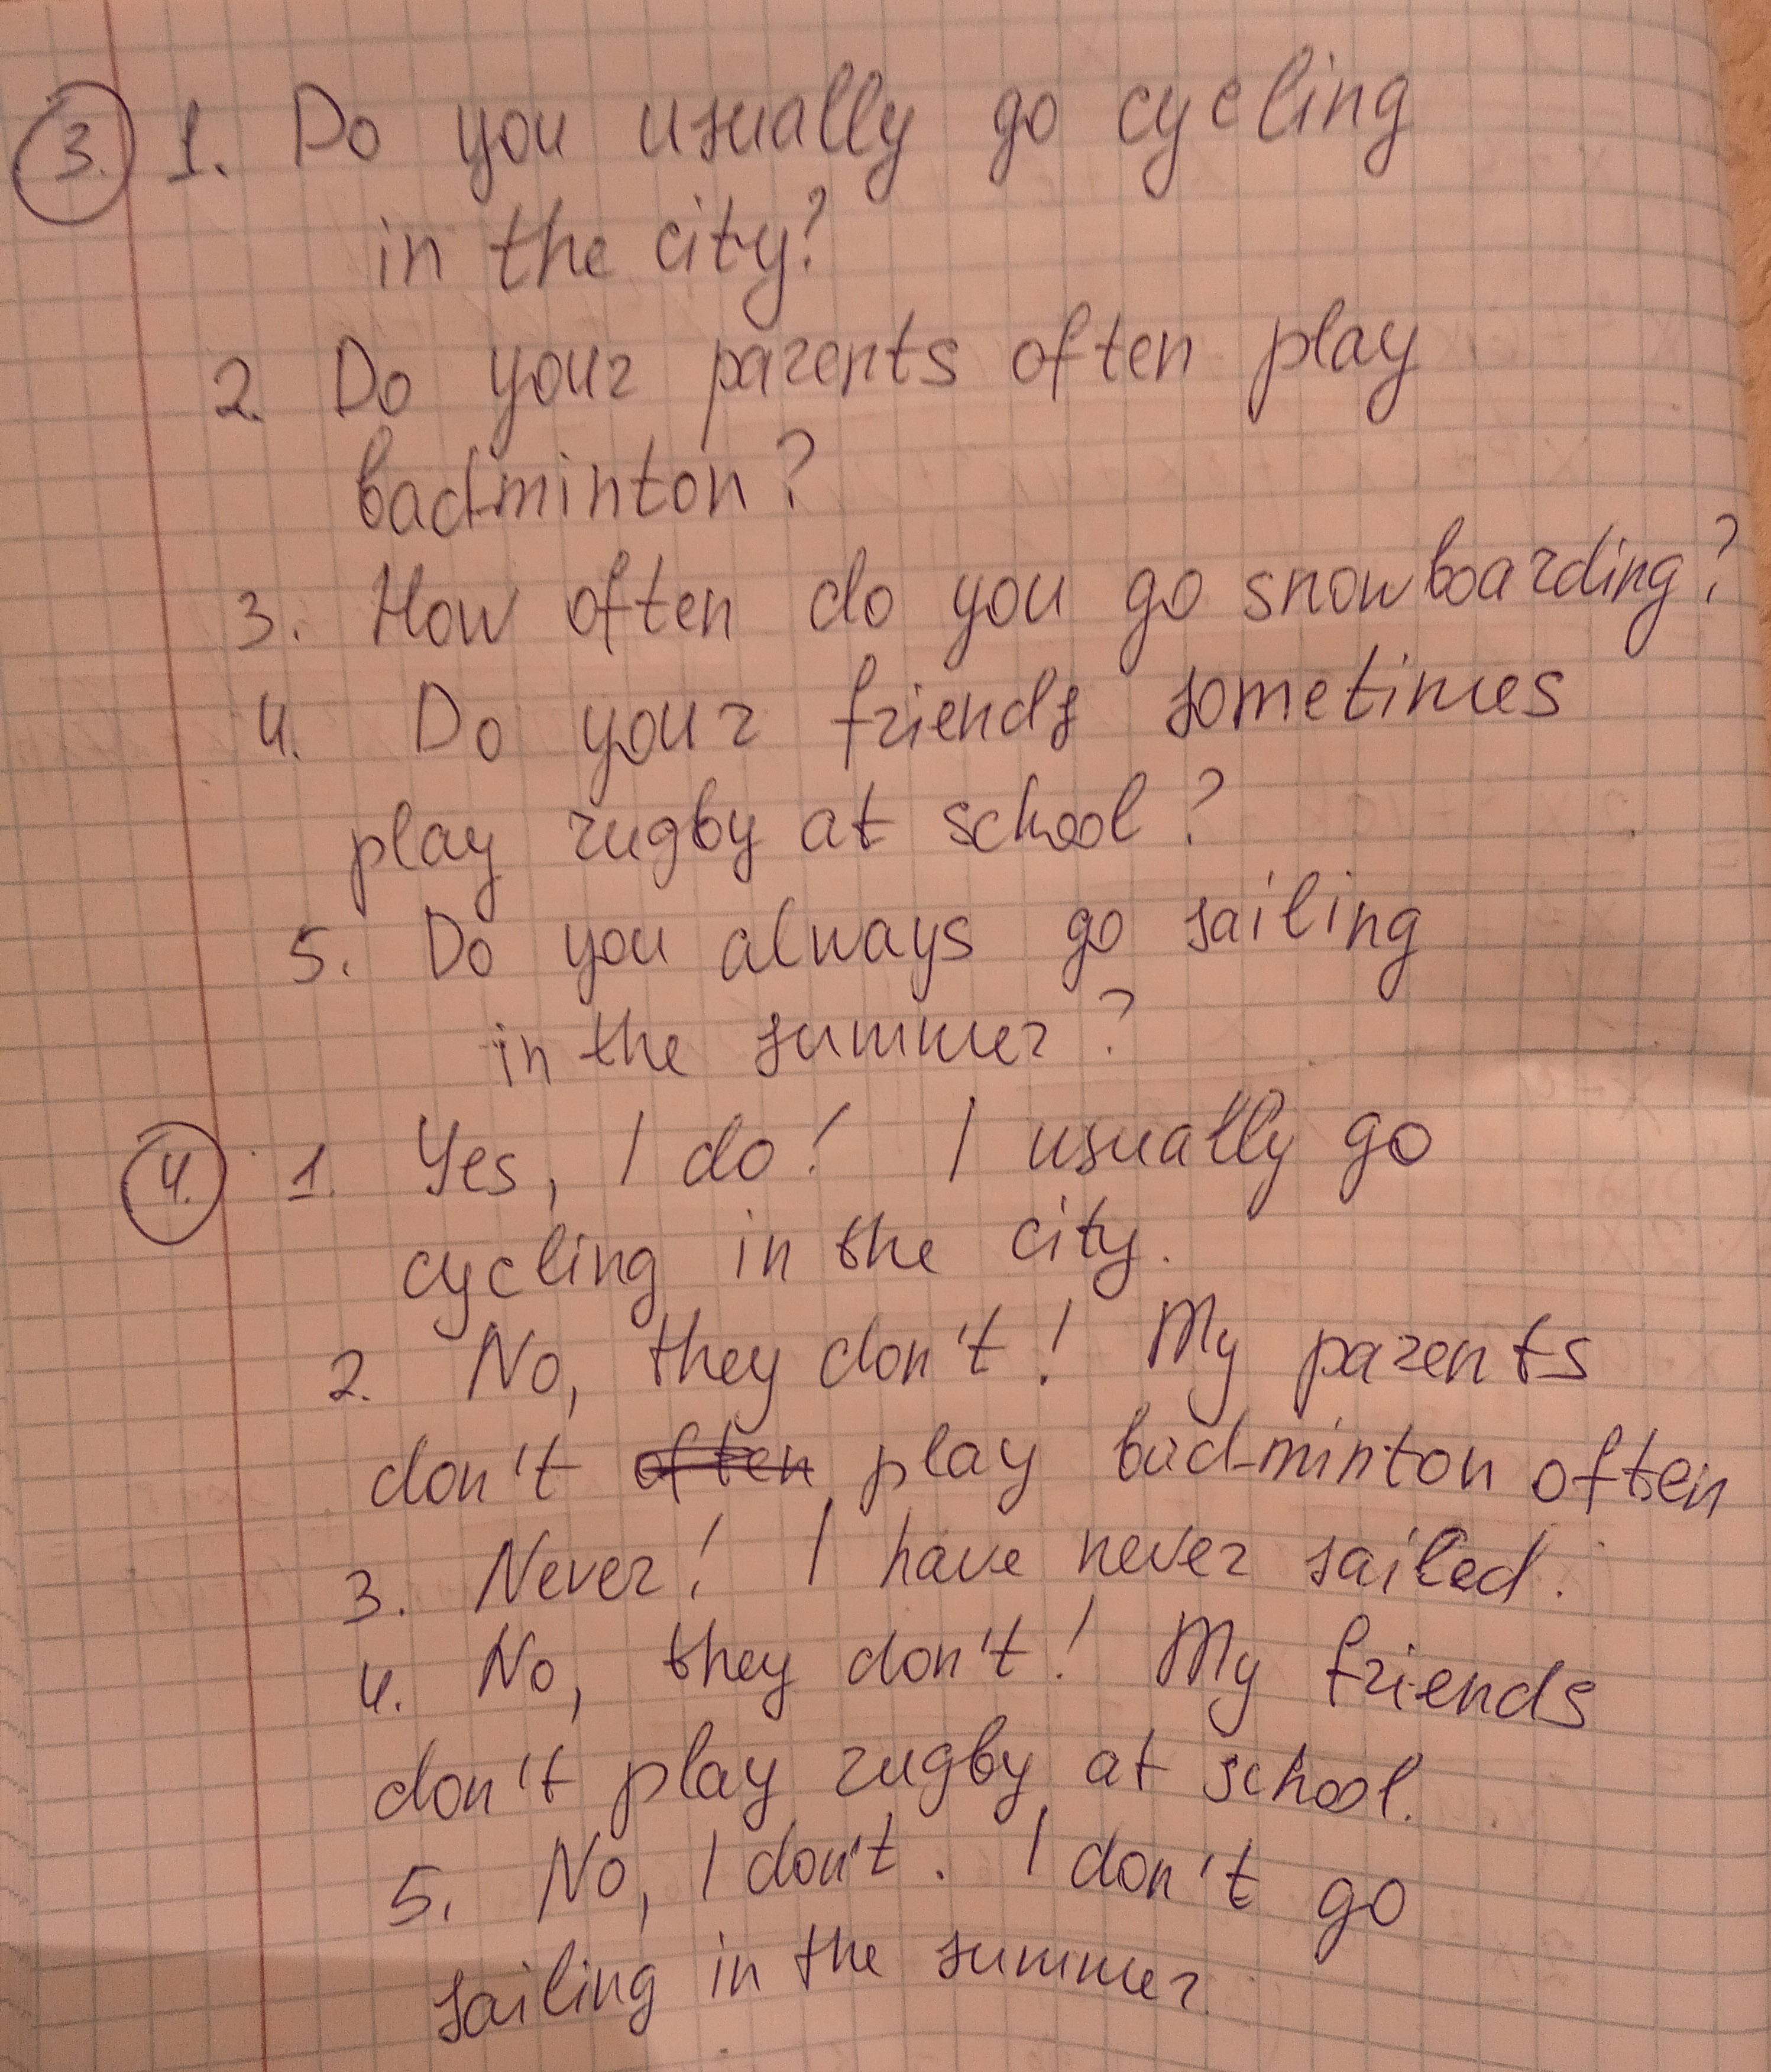 3. 1. Do you usually go cycling
in the city?
2. Do your parents often play
badminton?
3. How often do you go snowboarding?
4. Do your friends sometimes
play rugby at school?
5. Do you always go sailing
in the summer?
4. 1. Yes, I do! I usually go
cycling in the city.
2. No, they don't! My parents
don't often play badminton often
3. Never! I have never sailed.
4. No, they don't! My friends
don't play rugby at school.
5. No, I don't. I don't go
sailing in the summer.